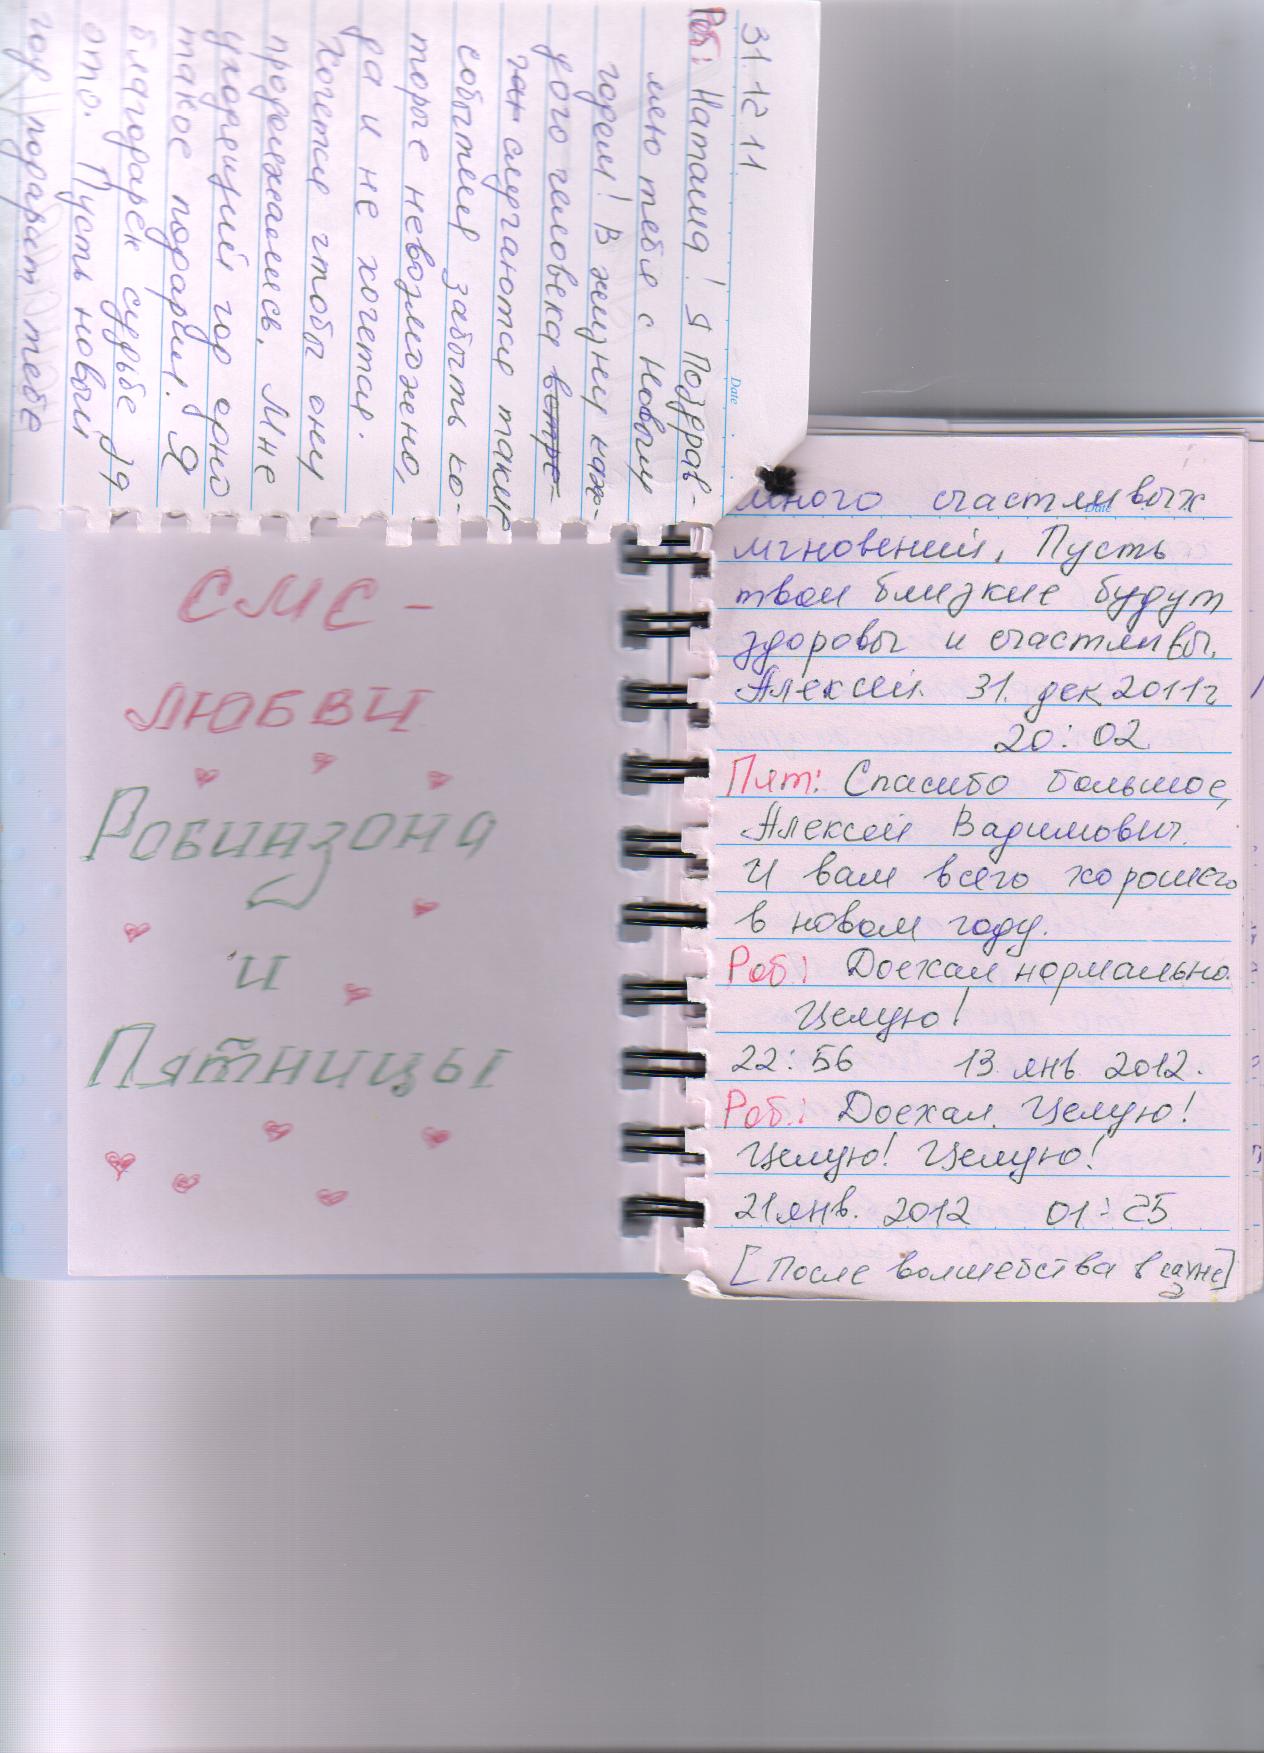 СМС -
ЛЮБВИ
Робинзона
и
Пятницы
31.12 11
Date
Роб: Наташа! Я Поздрав-
ляю тебя с Новым
годом! В жизни каж-
дого человека встре-
ча случаются такие
события забыть ко-
торые невозможно,
да и не хочется.
Хочется чтобы они
продолжались. Мне
уходящий год одно
такое подарил. Я
благодарен судьбе за
это. Пусть новый
год подарит тебе
Date
много счастливых
мгновений, Пусть
твои близкие будут
здоровы и счастливы.
Алексей. 31. дек 2011г
20: 02
Пят: Спасибо большое,
Алексей Вадимович.
И вам всего хорошего
в новом году.
Роб: Доехал нормально.
Целую!
22: 56 13 янв 2012.
Роб.: Доехал. Целую!
Целую! Целую!
21 янв. 2012 01:25
[После волшебства в сауне]